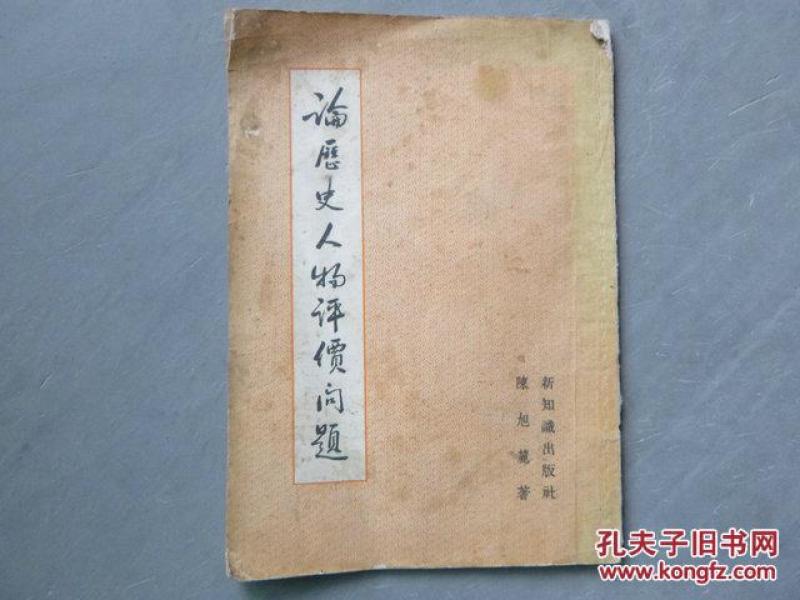 論歷史人物評價問題
新知識出版社
陳旭麓著
孔夫子旧书网
www.kongfz.com